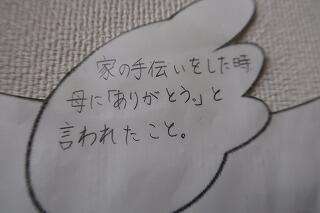 家の手伝いをした時
母に「ありがとう。」と
言われたこと。